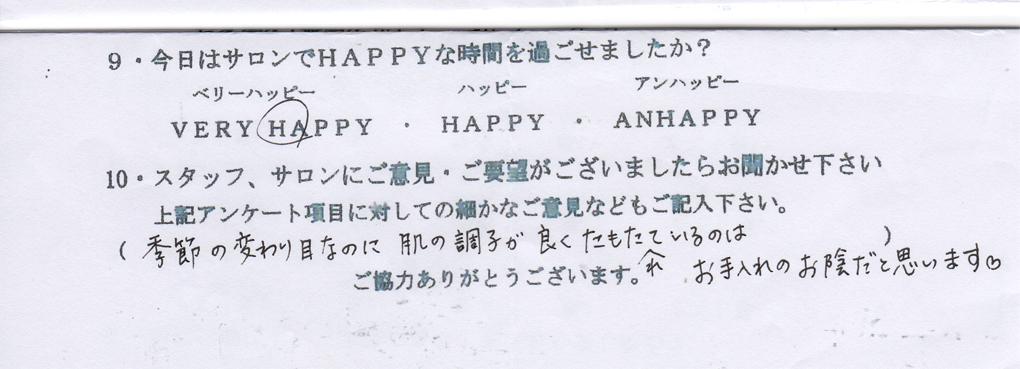 9・今日はサロンでHAPPYな時間を過ごせましたか?
ベリーハッピー ハッピー アンハッピー
VERY HAPPY ・ HAPPY ・ ANHAPPY
10・スタッフ、サロンにご意見・ご要望がございましたらお聞かせ下さい
上記アンケート項目に対しての細かなご意見などもご記入下さい。
(季節の変わり目なのに 肌の調子が 良くたもたれているのは)
お手入れのお陰だと思います♡
ご協力ありがとうございます。